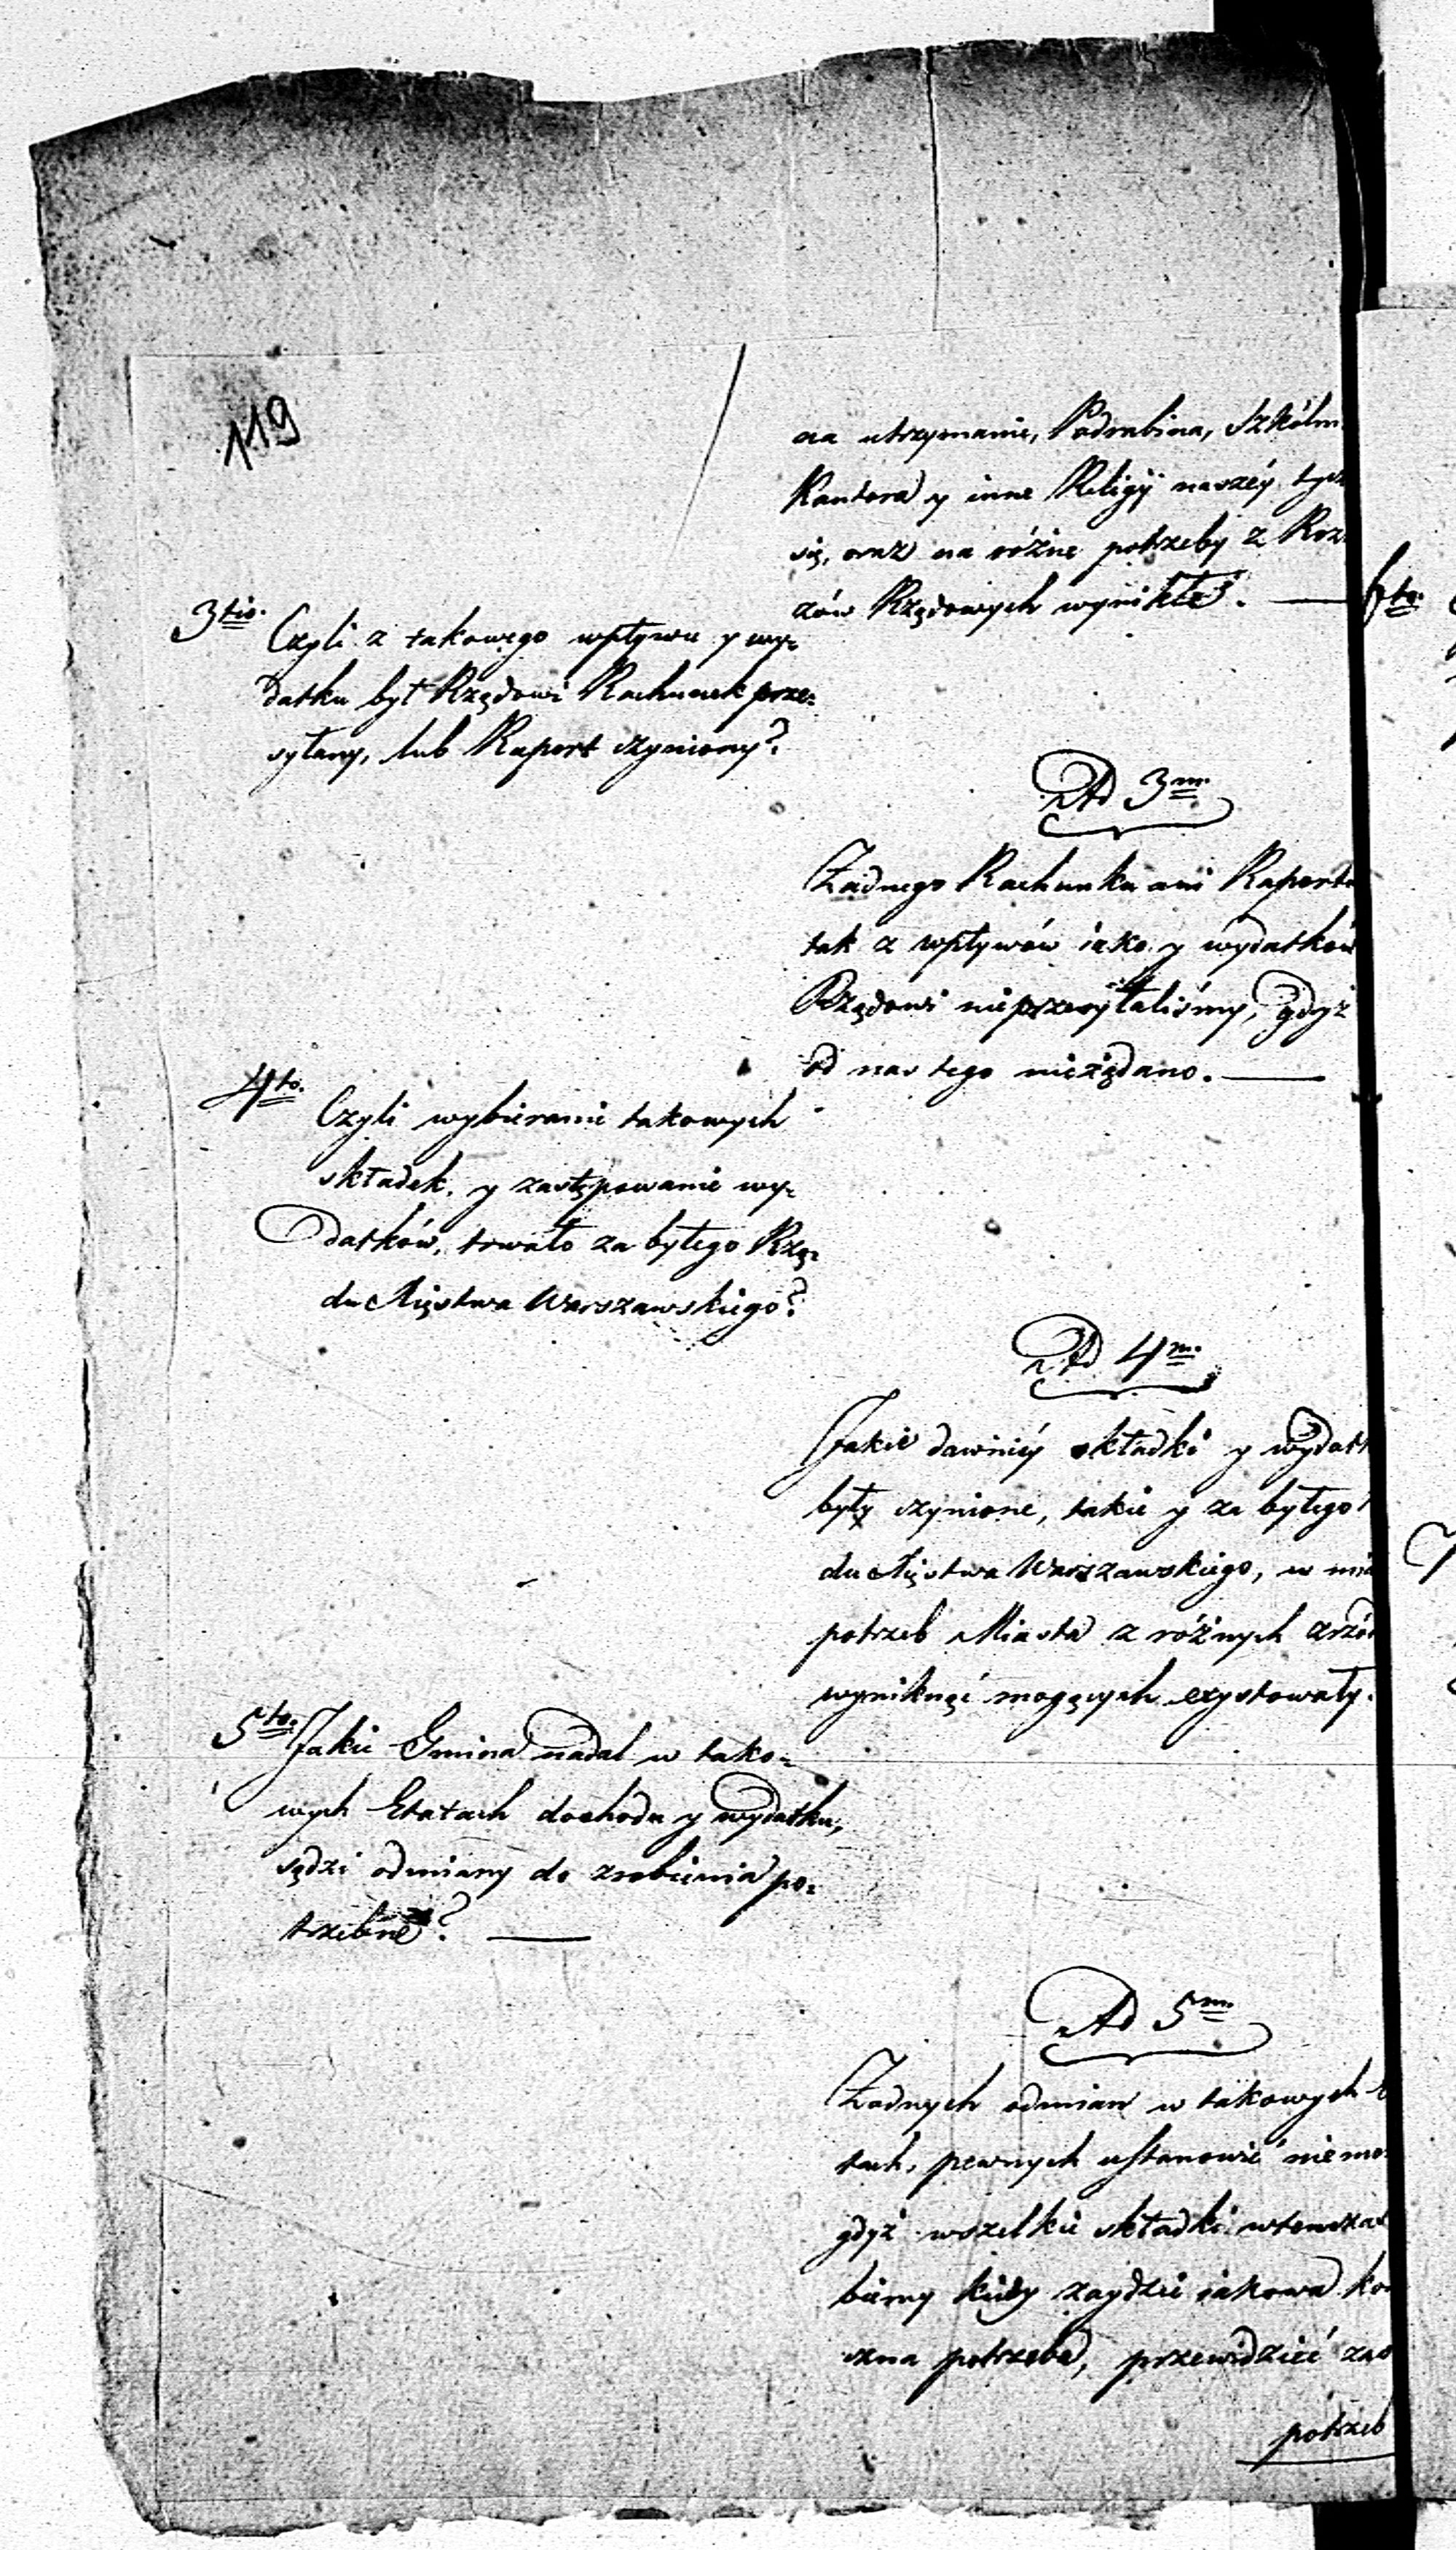 119
na utrzymanie, Podrabina, Szkóln
Kantora y inne Religÿ naszéy tycz
się, oraz na różne potrzeby z Roz
zów Rządowych wynikłe. —
3tio. Czyli z takowego wpływu y wy=
datku był Rządowi Rachunek prze=
syłany, lub Raport czyniony?
Ad 3m.
Żadnego Rachunku ani Raportu
tak z wpływów iako y wydatków
Rządowi nieprzesyłaliśmy, gdyż
od nas tego nieżądano. —
4to. Czyli wybieranie takowych
składek, y zastępowanie wy=
datków, trwało za byłego Rzą=
du Xięstwa Warszawskiego?
Ad 4m.
Jakie dawniéy składki y wydat
były czynione, takie y za byłego
du Xięstwa Warszawskiego, w mia
potrzeb Miasta z różnych źrzód
wyniknąć mogących exystowały.
5to. Jakie Gmina nadal w tako=
wych Etatach dochodu y wydatku,
sądzi odmiany do zrobienia po=
trzebne? —
Ad 5m.
Żadnych odmian w takowych
tach, pewnych ustanowić niemo
gdyż wszelkie składki wtenczas
biemy kiedy zaydzie iakowa kon
czna potrzeba, przewidzieć zaś
potrzeb
6to.
7